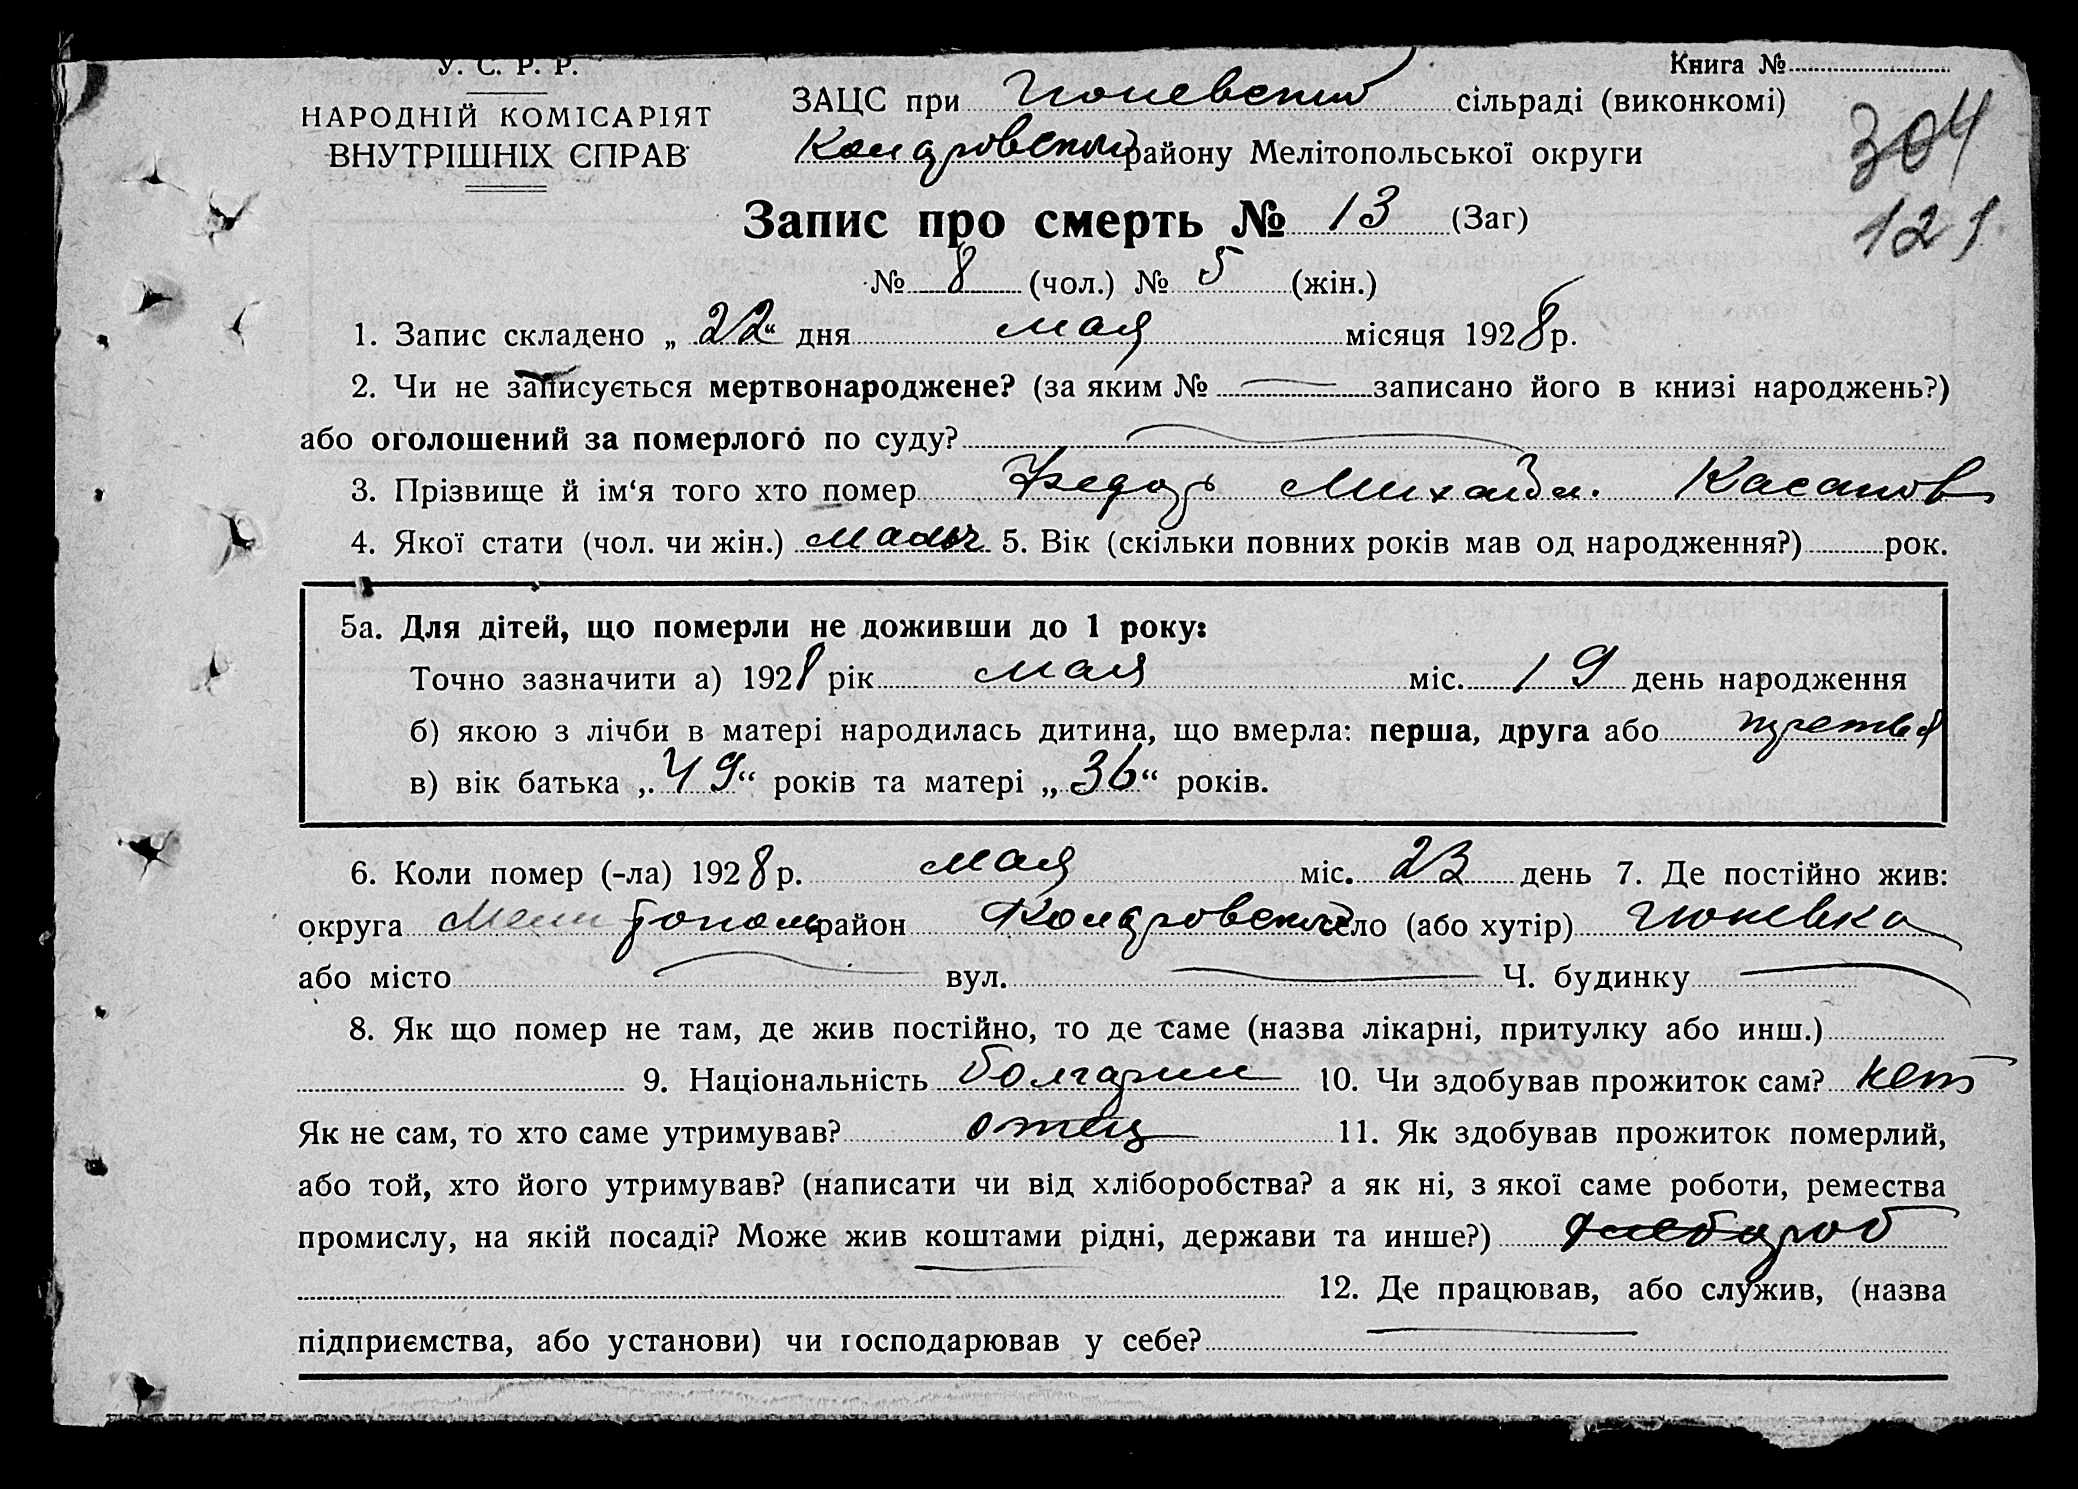 У. С. Р. Р.
НАРОДНІЙ КОМІСАРІЯТ
ВНУТРІШНІХ СПРАВ
Книга №
ЗАЦС при Гюневской сільраді (виконкомі)
району Мелітопольської округи
304
121
Запис про смерть № 13 (Заг)
№ 8 (чол.) № 5 (жін.)
1. Запис складено „ 22 “ дня мая місяця 1928 р.
2. Чи не записується мертвонароджене? (за яким № записано його в книзі народжень?)
або оголошений за померлого по суду?
3. Прізвище й ім‘я того хто помер Федор Михайл. Касапов
4. Якої стати (чол. чи жін.) мальч 5. Вік (скільки повних років мав од народження?) рок.
5а. Для дітей, що померли не доживши до 1 року:
Точно зазначити а) 1928 рік мая міс. 19 день народження
б) якою з лічби в матері народилась дитина, що вмерла: перша, друга або третья
в) вік батька „ 49 “ років та матері „ 36 “ років.
6. Коли помер (-ла) 1928 р. мая міс. 23 день 7. Де постійно жив:
округа Мелитополь район село (або хутір) Гюневка
або місто вул. Ч. будинку
8. Як що помер не там, де жив постійно, то де саме (назва лікарні, притулку або инш.)
9. Національність болгарин 10. Чи здобував прожиток сам? нет
Як не сам, то хто саме утримував? отец 11. Як здобував прожиток померлий,
або той, хто його утримував? (написати чи від хліборобства? а як ні, з якої саме роботи, ремества
промислу, на якій посаді? Може жив коштами рідні, держави та инше?) хлебороб
12. Де працював, або служив, (назва
підприємства, або установи) чи господарював у себе?